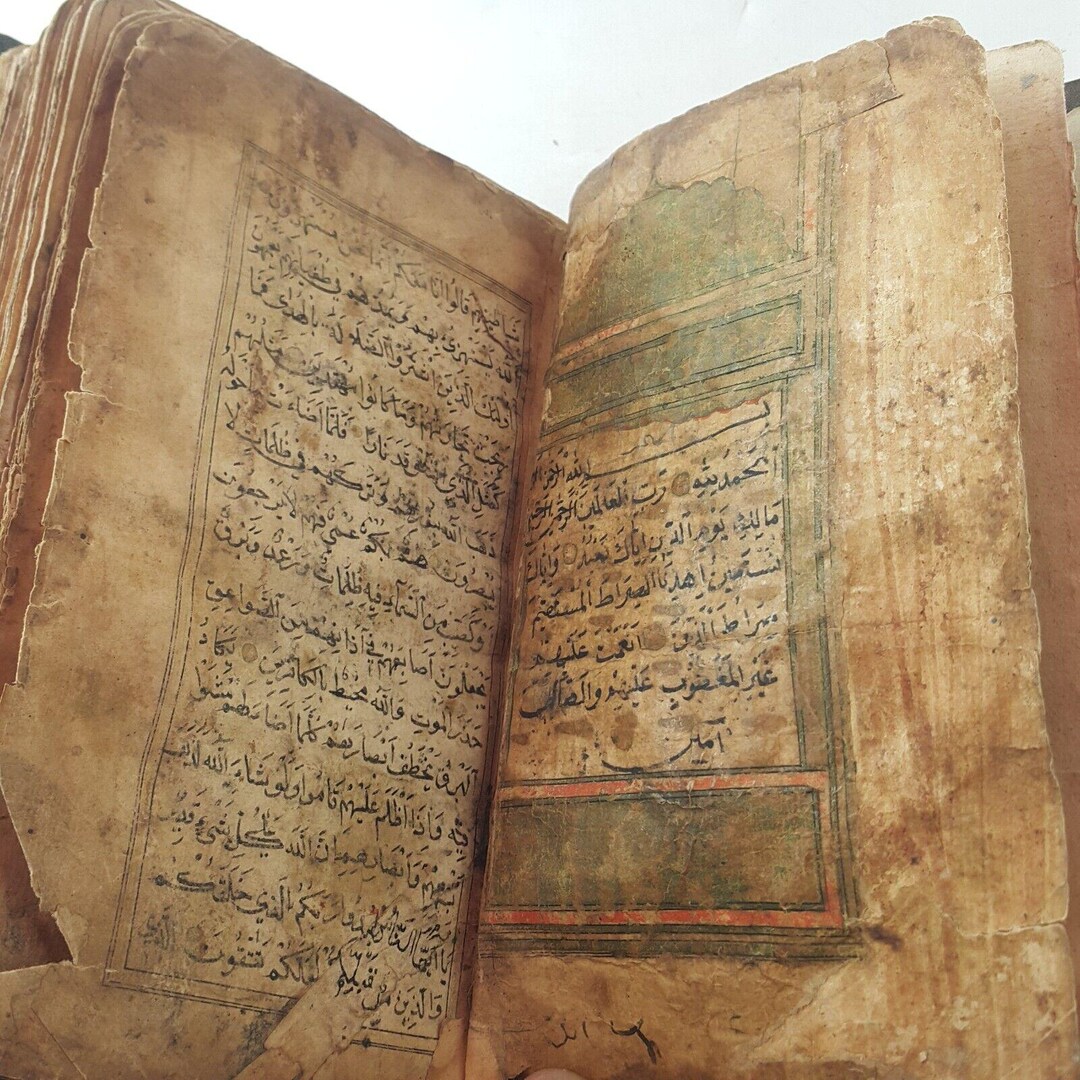 بسم الله الرحمن الرحيم
الحمد لله رب العالمين الرحمن الرحيم
مالك يوم الدين اياك نعبد واياك
نستعين اهدنا الصراط المستقيم
صراط الذين انعمت عليهم
غير المغضوب عليهم ولا الضالين
آمين
شياطينهم قالوا انا معكم انما نحن مستهزؤن
الله يستهزئ بهم ويمدهم في طغيانهم يعمهون
اولئك الذين اشتروا الضلالة بالهدى فما
ربحت تجارتهم وما كانوا مهتدين مثلهم
كمثل الذي استوقد نارا فلما اضاءت ما حوله
ذهب الله بنورهم وتركهم في ظلمات لا
يبصرون صم بكم عمي فهم لا يرجعون
او كصيب من السماء فيه ظلمات ورعد وبرق
يجعلون اصابعهم في آذانهم من الصواعق
حذر الموت والله محيط بالكافرين يكاد
البرق يخطف ابصارهم كلما اضاء لهم مشوا
فيه واذا اظلم عليهم قاموا ولو شاء الله لذهب
بسمعهم وابصارهم ان الله على كل شيء قدير
يا ايها الناس اعبدوا ربكم الذي خلقكم
والذين من قبلكم لعلكم تتقون الذي